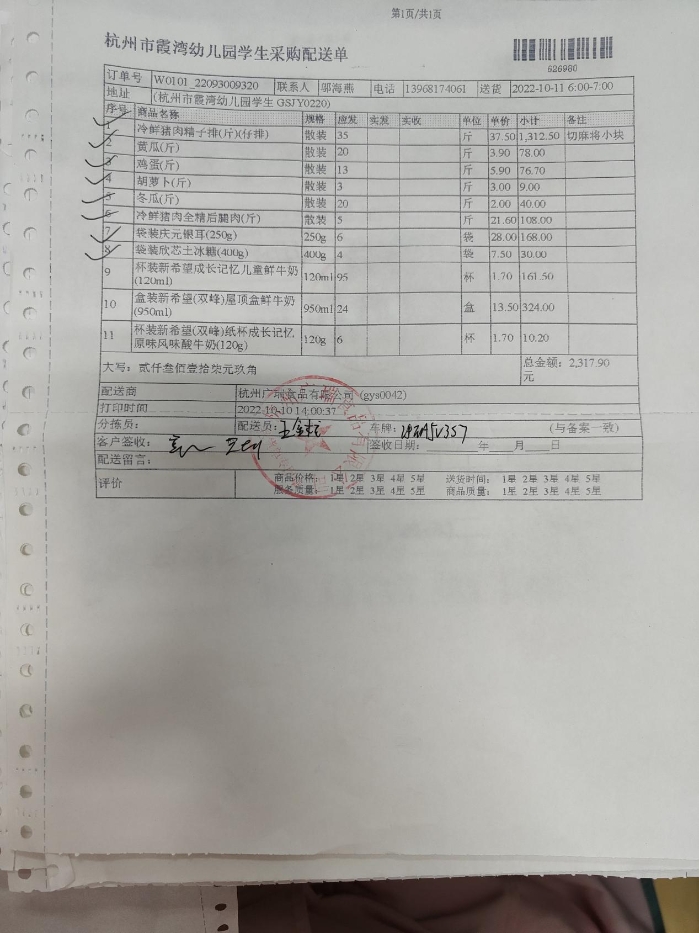 第1页/共1页
杭州市霞湾幼儿园学生采购配送单
626980
订单号 W0101_22093009320 联系人 邬海燕 电话 13968174061 送货 2022-10-11 6:00-7:00
地址 (杭州市霞湾幼儿园学生 GSJY0220)
序号 商品名称 规格 应发 实发 实收 单位 单价 小计 备注
1 冷鲜猪肉精子排(斤)(仔排) 散装 35 斤 37.50 1,312.50 切麻将小块
2 黄瓜(斤) 散装 20 斤 3.90 78.00
3 鸡蛋(斤) 散装 13 斤 5.90 76.70
4 胡萝卜(斤) 散装 3 斤 3.00 9.00
5 冬瓜(斤) 散装 20 斤 2.00 40.00
6 冷鲜猪肉全精后腿肉(斤) 散装 5 斤 21.60 108.00
7 袋装庆元银耳(250g) 250g 6 袋 28.00 168.00
8 袋装欣芯土冰糖(400g) 400g 4 袋 7.50 30.00
9 杯装新希望成长记忆儿童鲜牛奶(120ml) 120ml 95 杯 1.70 161.50
10 盒装新希望(双峰)屋顶盒鲜牛奶(950ml) 950ml 24 盒 13.50 324.00
11 杯装新希望(双峰)纸杯成长记忆原味风味酸牛奶(120g) 120g 6 杯 1.70 10.20
大写：贰仟叁佰壹拾柒元玖角 总金额：2,317.90元
配送商 杭州广瑞食品有限公司 (gys0042)
打印时间 2022-10-10 14:00:37
分拣员： 配送员： 车牌： (与备案一致)
客户签收： 签收日期：____年__月__日
配送留言：
评价 商品价格： 1星 2星 3星 4星 5星 送货时间： 1星 2星 3星 4星 5星
服务质量： 1星 2星 3星 4星 5星 商品质量： 1星 2星 3星 4星 5星